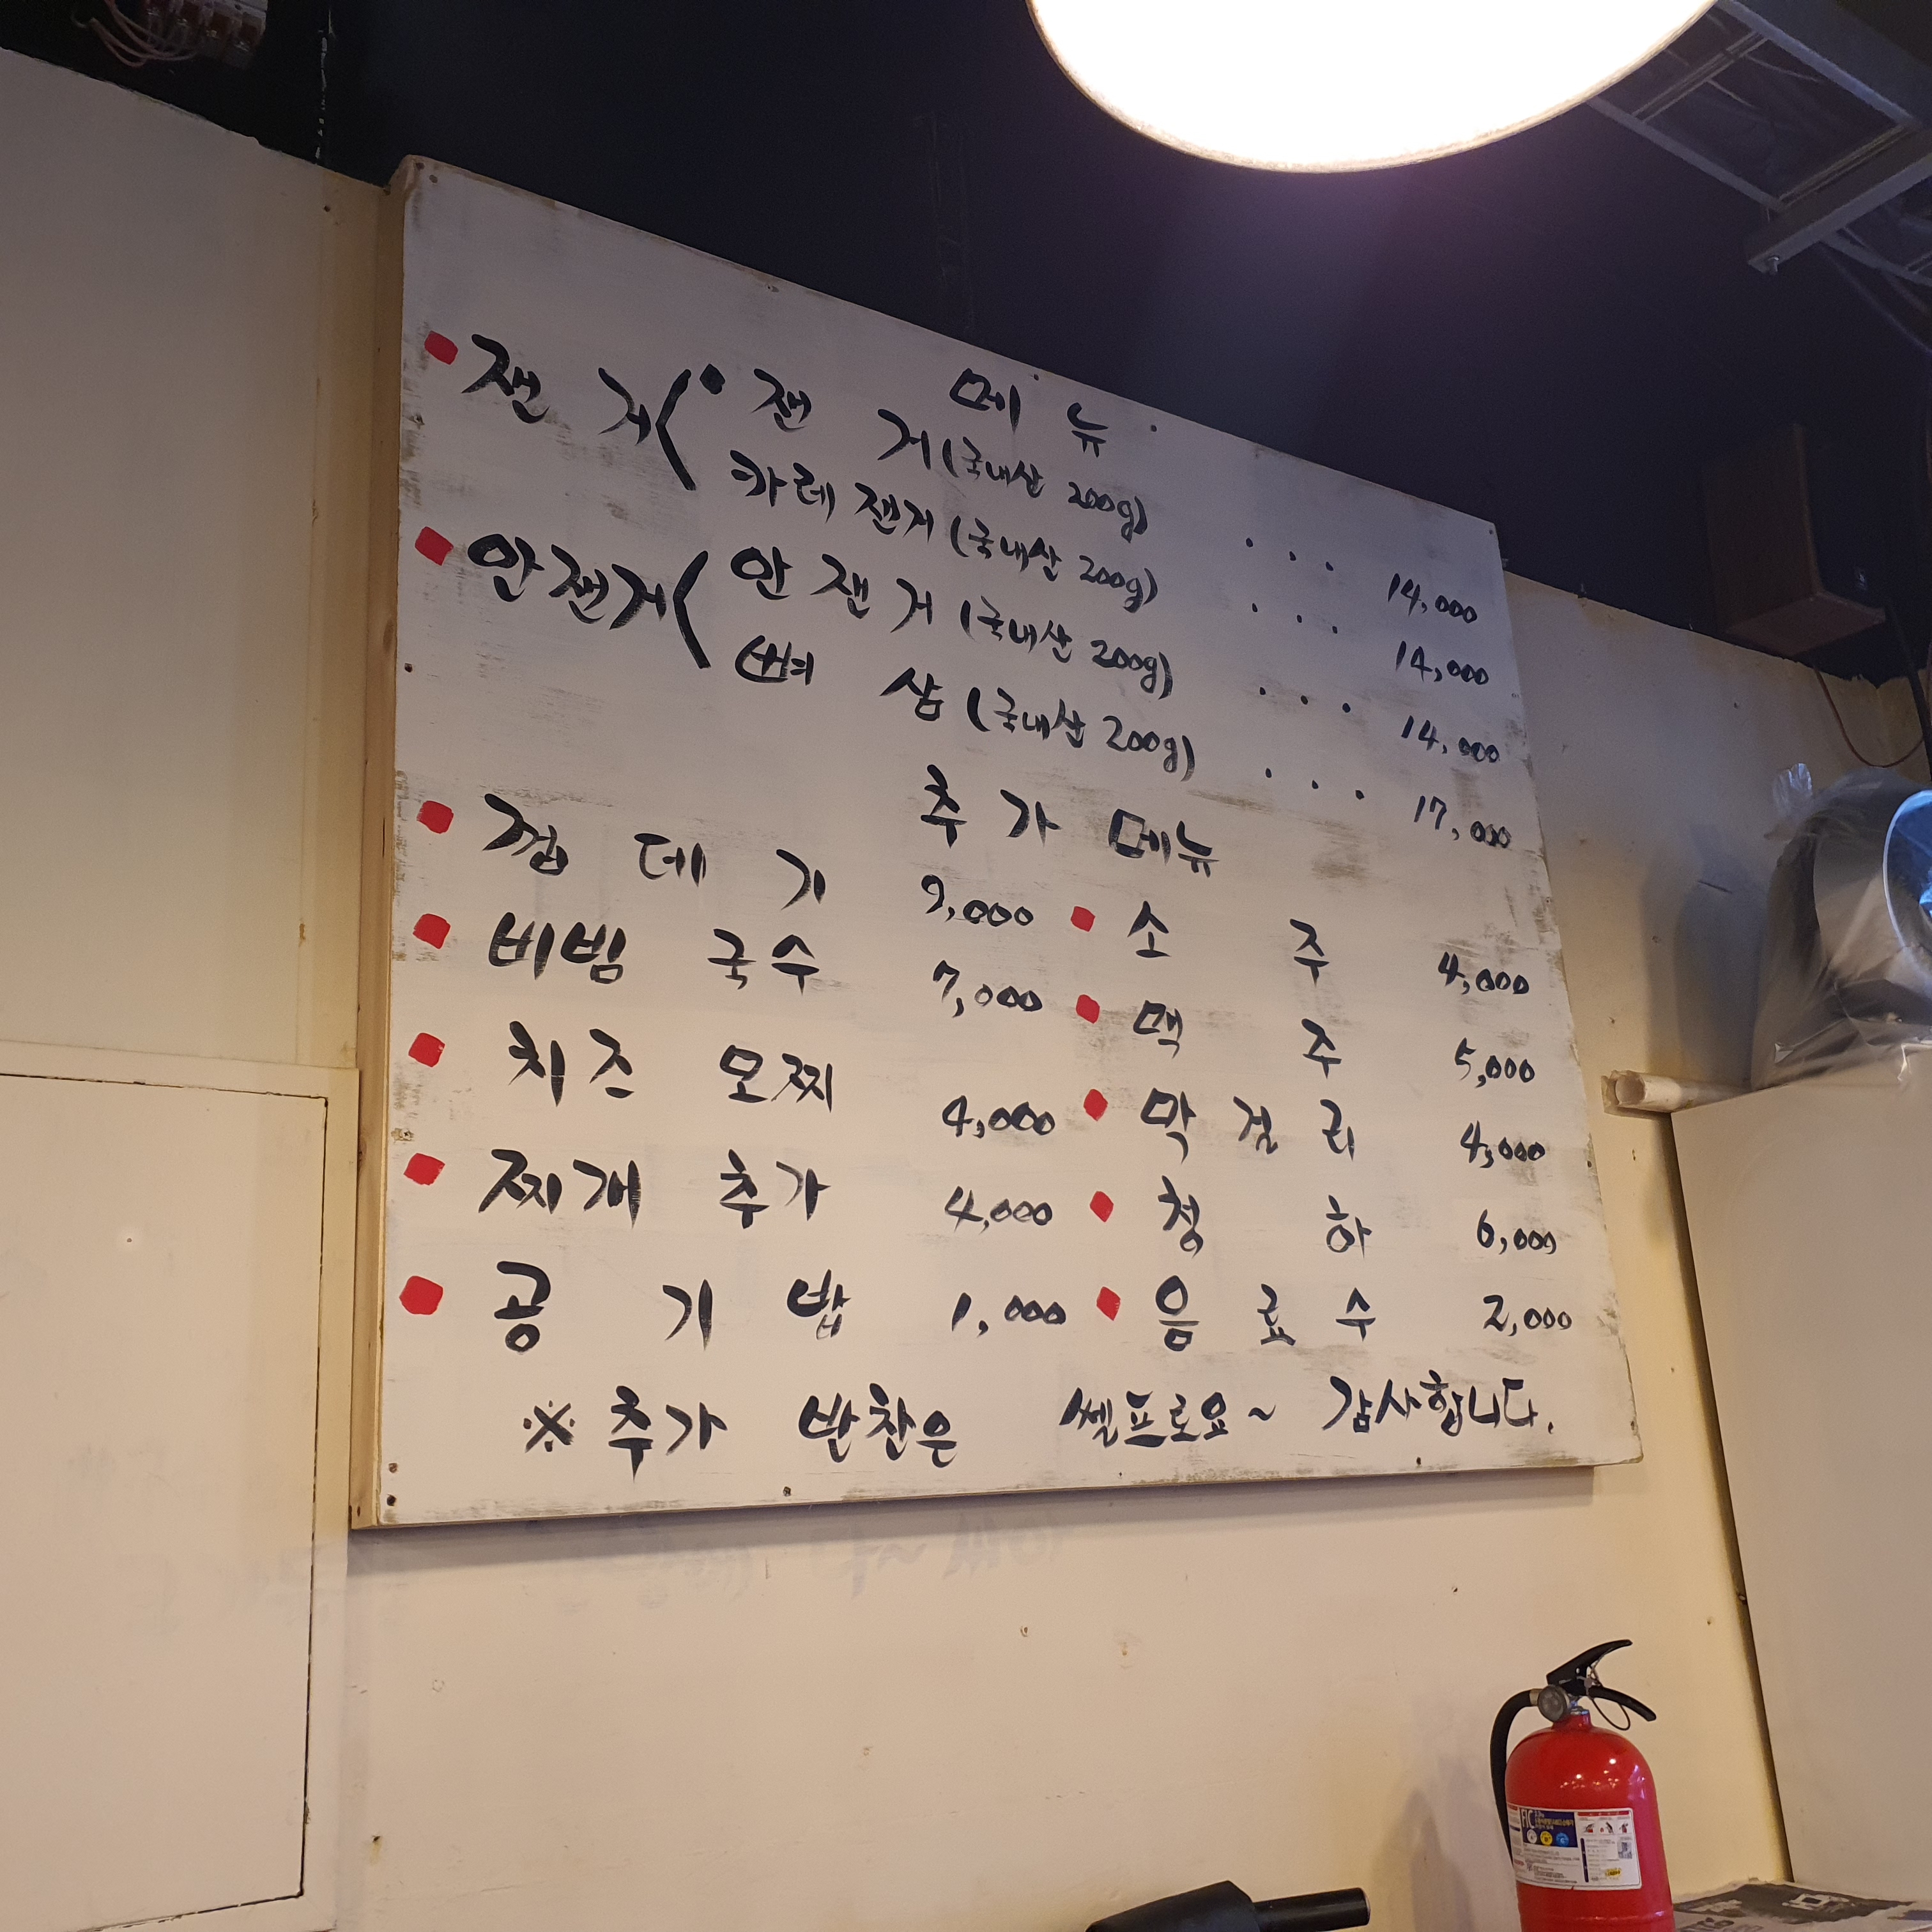 메뉴
잰거 잰거 (국내산 200g) ... 14,000
카레잰거 (국내산 200g) ... 14,000
안잰거 안잰거 (국내산 200g) ... 14,000
뼈삼 (국내산 200g) ... 17,000
추가메뉴
껍데기 9,000 소주 4,000
비빔국수 7,000 맥주 5,000
치즈모찌 4,000 막걸리 4,000
찌개추가 4,000 청하 6,000
공기밥 1,000 음료수 2,000
※ 추가 반찬은 쎌프로요~ 감사합니다.